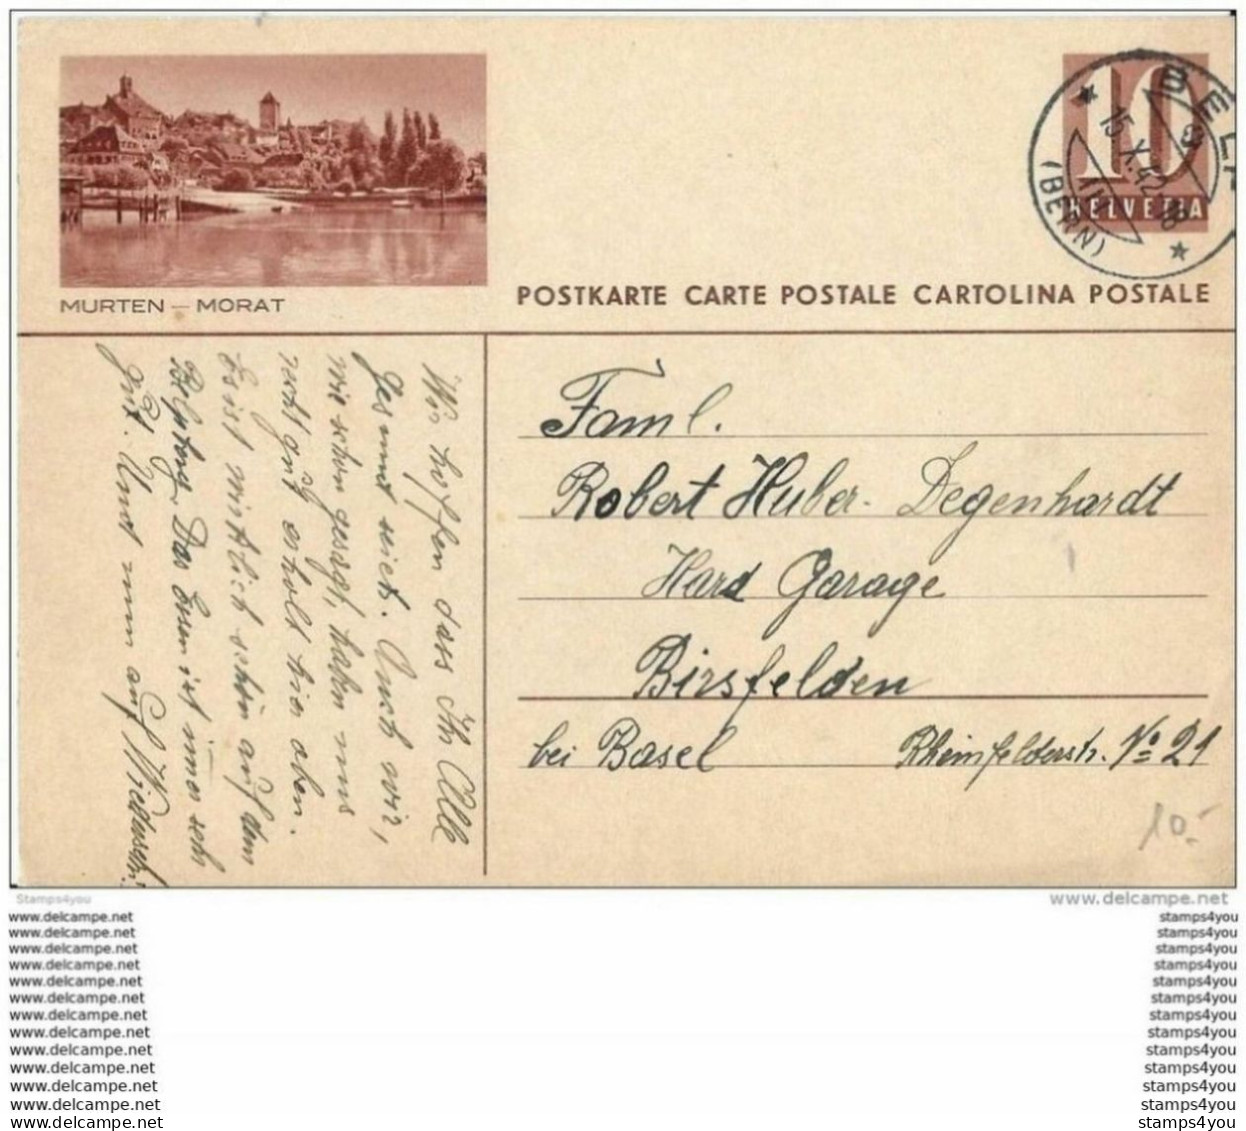 MURTEN – MORAT
10
HELVETIA
BELP
15.X.42.18
(BERN)
POSTKARTE CARTE POSTALE CARTOLINA POSTALE
Wir hoffen dass Ihr Alle
gesund seiet. Auch wir,
wie schon gesagt, haben uns
recht gut erholt hier oben.
Es ist wirklich schön auf dem
Belpberg. Das Essen ist immer sehr
gut. Und nun auf Wiedersehn.
Faml.
Robert Huber-Degenhardt
Hard Garage
Birsfelden
bei Basel Rheinfelderstr. No 21
10.-
Stamps4you www.delcampe.net
www.delcampe.net stamps4you
www.delcampe.net stamps4you
www.delcampe.net stamps4you
www.delcampe.net stamps4you
www.delcampe.net stamps4you
www.delcampe.net stamps4you
www.delcampe.net stamps4you
www.delcampe.net stamps4you
www.delcampe.net stamps4you
www.delcampe.net stamps4you
www.delcampe.net stamps4you
www.delcampe.net stamps4you
www.delcampe.net stamps4you